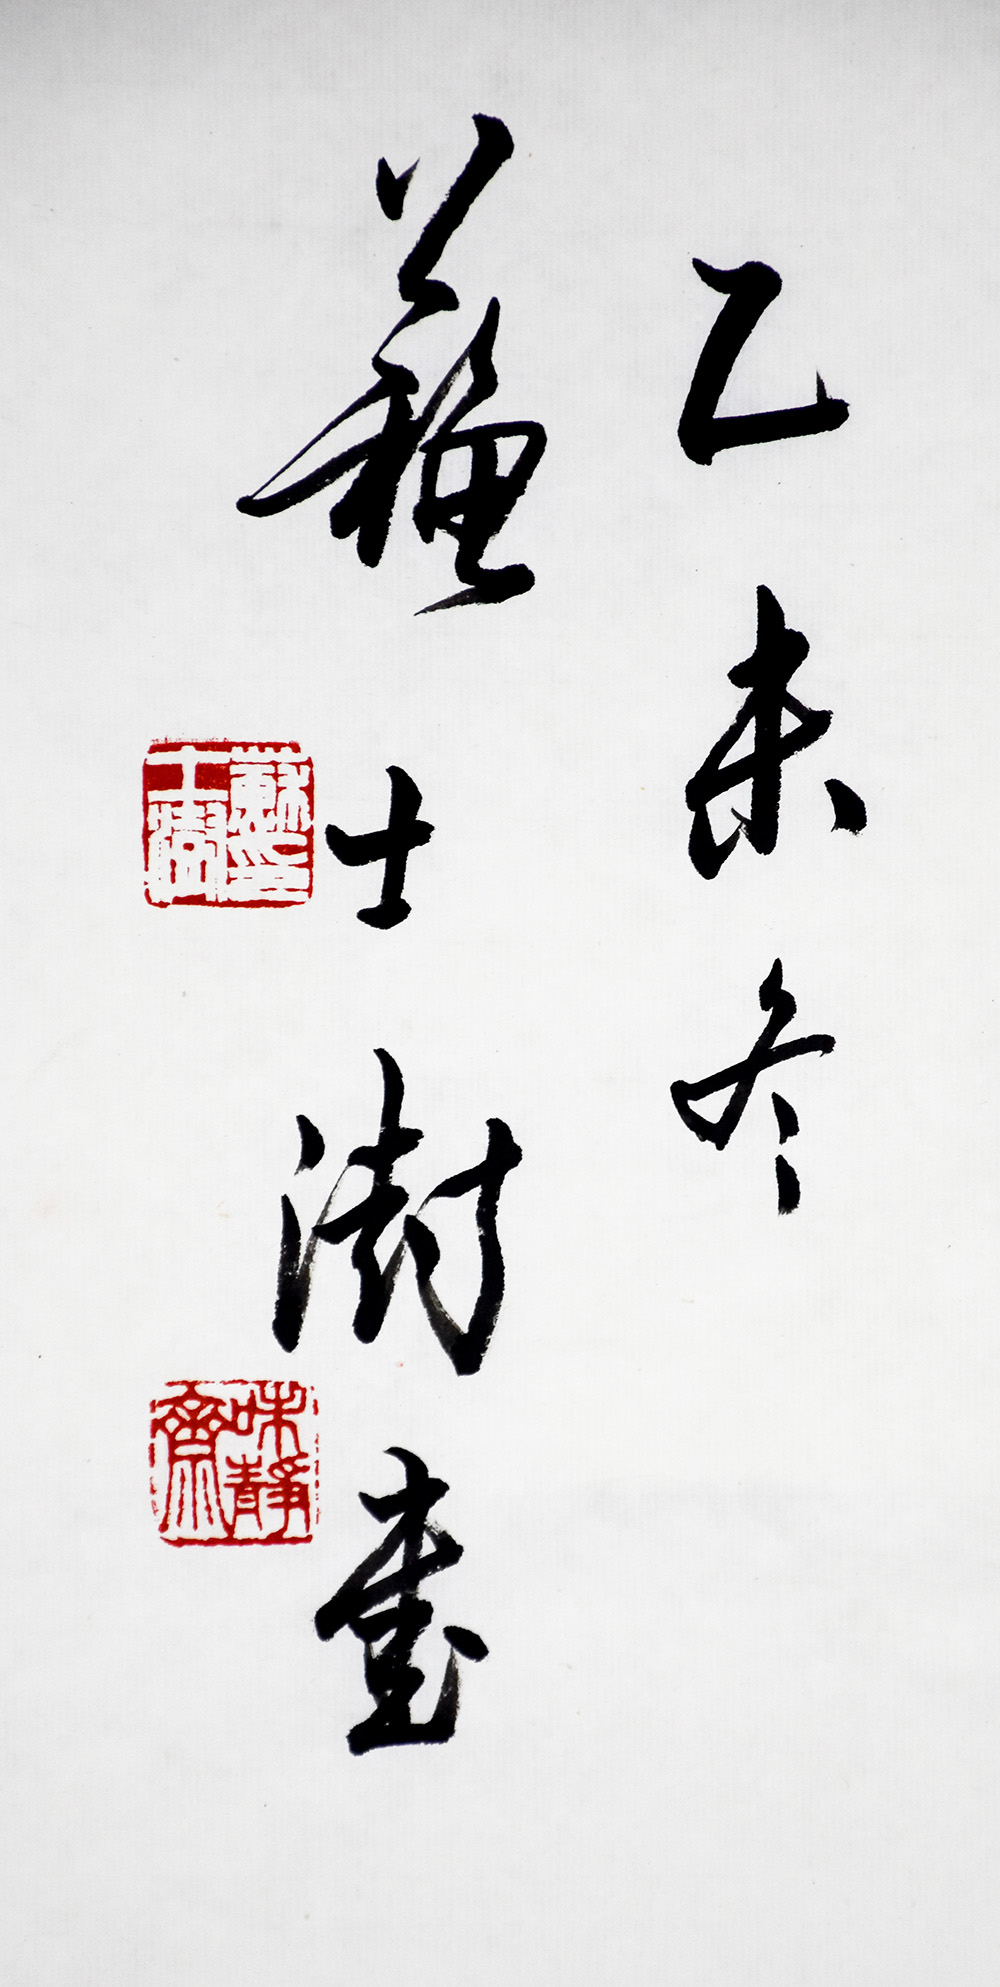 乙未冬
蘇士澍書
蘇士澍印
味靜齋